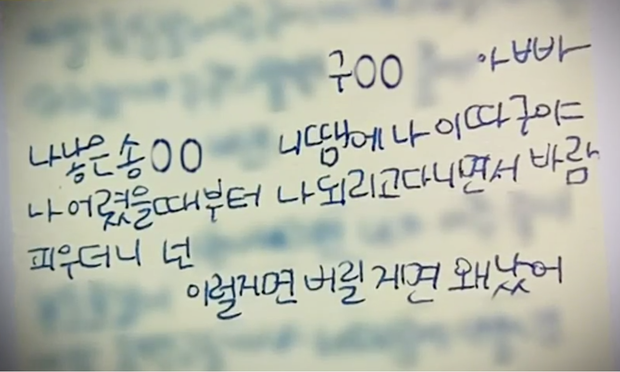 구OO 아빠바
나낳은송OO 니땜에나이따구야
나어렸을때부터 나되리고다니면서 바람
피우더니 넌
이럴지면버릴게면왜낳어